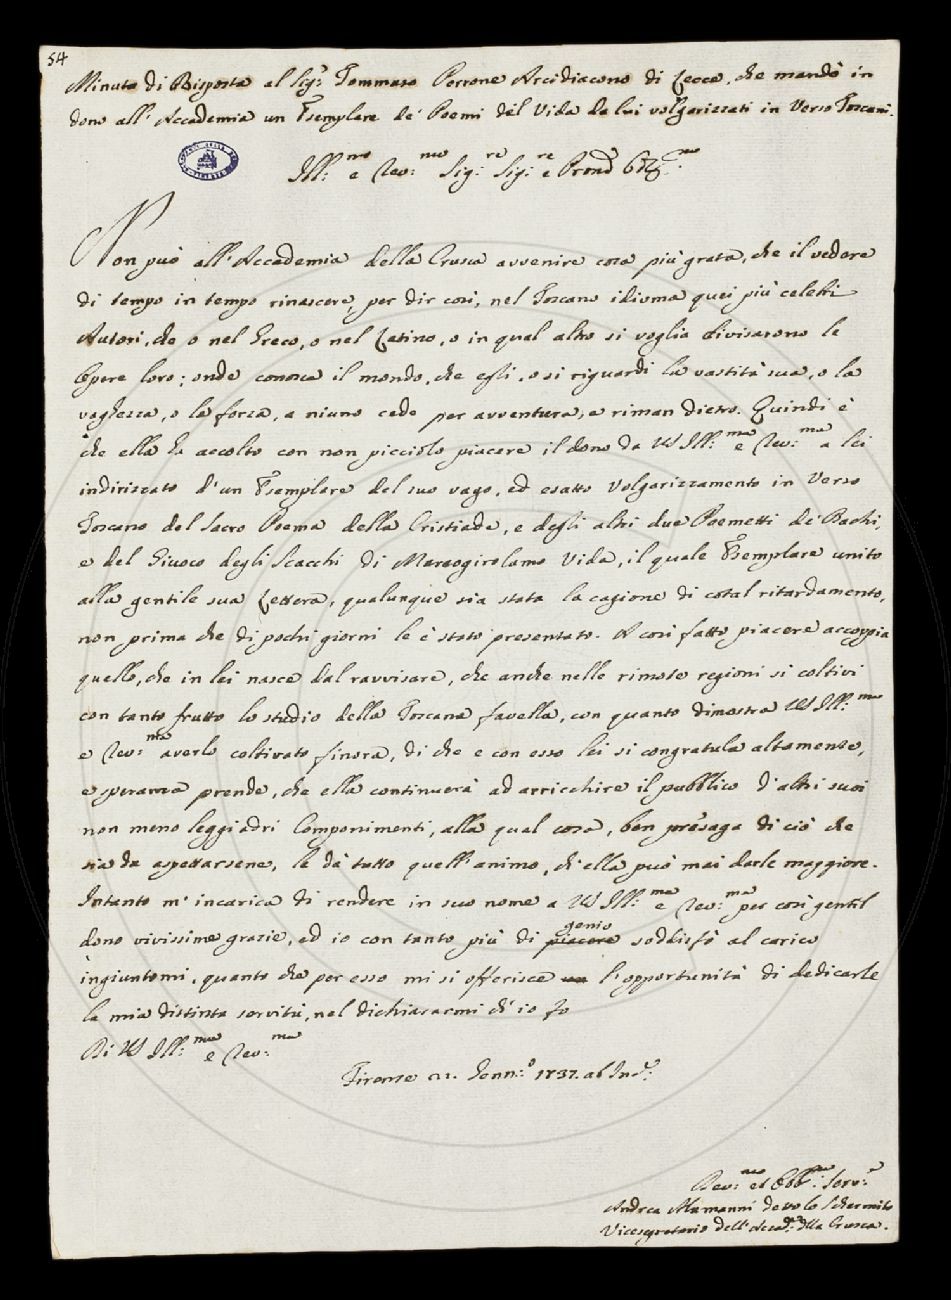 54
Minuta di Risposta al Sig.r Tommaso Perrone Arcidiacono di Lecce, che mandò in
dono all'Accademia un Esemplare de' Poemi del Vida da lui volgarizzati in Verso Toscano.
Ill:mo e Rev:mo Sig:re Sig:re e Prond
Non può all'Accademia della Crusca avvenire cosa più grata, che il vedere
di tempo in tempo rinascere, per dir così, nel Toscano idioma quei più celebri
Autori, che o nel Greco, o nel Latino, o in qual altro si voglia divisarono le
Opere loro; onde conosca il mondo, che egli, o si riguardi la vastità sua, o la
vaghezza, o la forza, a niuno cede per avventura, e riman dietro. Quindi è
che ella ha accolto con non picciolo piacere il dono da VS Ill:ma e Rev:ma a lei
indirizzato d'un Esemplare del suo vago, ed esatto Volgarizzamento in Verso
Toscano del Sacro Poema della Cristiade, e degli altri due Poemetti de' Bachi,
e del Giuoco degli Scacchi di Marcogirolamo Vida, il quale Esemplare unito
alla gentile sua Lettera, qualunque sia stata la cagione di cotal ritardamento,
non prima che di pochi giorni le è stato presentato. A così fatto piacere accoppia
quello, che in lei nasce dal ravvisare, che anche nelle rimote regioni si coltivi
con tanto frutto lo studio della Toscana favella, con quanto dimostra VS Ill:ma
e Rev:ma averlo coltivato finora, di che e con esso lei si congratula altamente,
e speranza prende, che ella continuerà ad arricchire il pubblico d'altri suoi
non meno leggiadri Componimenti, alla qual cosa, ben presaga di ciò che
sia da aspettarsene, le dà tutto quell'animo, ch'ella può mai darle maggiore.
Intanto m'incarica di rendere in suo nome a VS Ill:ma e Rev:ma per così gentil
dono vivissime grazie, ed io con tanto più di piacere genio soddisfò al carico
ingiuntomi, quanto che per esso mi si offerisce l'opportunità di dedicarle
la mia distinta servitù, nel dichiararmi ch'io fo
Di VS Ill:ma e Rev:ma
Firenze Genn:o 1737. ab Inc.
Dev:mo et Obb:mo Serv:e
Andrea Alamanni detto lo Schermito
Vicesegretario dell'Accad:a della Crusca.